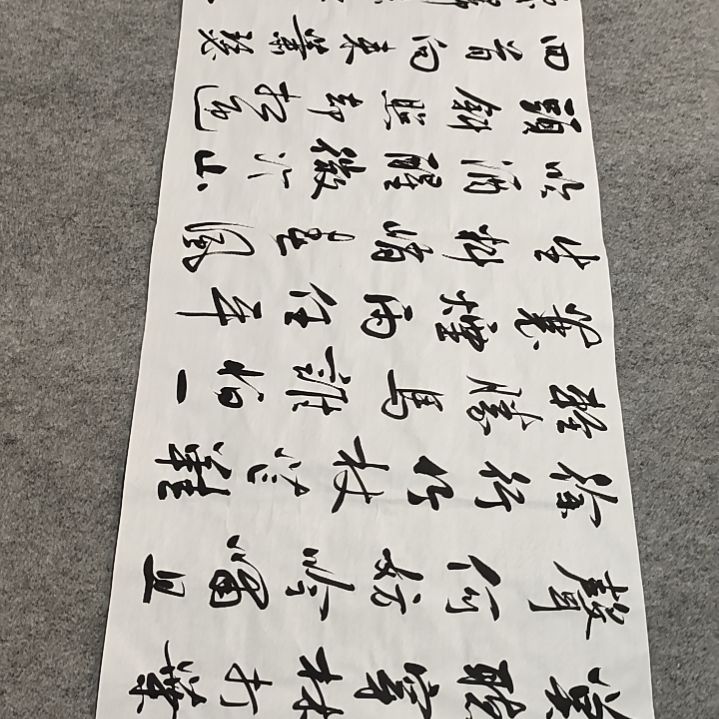 莫聽穿林打葉
聲何妨吟嘯且
徐行竹杖芒鞋
輕勝馬誰怕一
蓑煙雨任平
生料峭春風
吹酒醒微冷山
頭斜照却相迎
回首向来蕭瑟